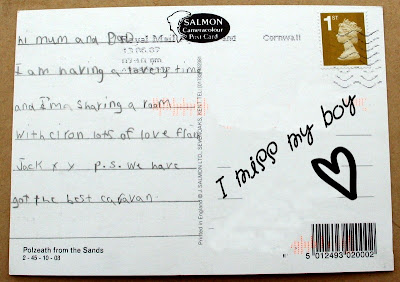 SALMON
Cameracolour
Post Card
Royal Mail
Cornwall
1ST
hi mum and Dad
I am having a lovely time
and I'ma sharing a room
with ciron lots of love from
Jack x y p.s. we have
got the best caravan
I miss my boy
Printed in England © J SALMON LTD., SEVENOAKS, KENT TEL
Polzeath from the Sands
2 - 45 - 10 - 03
5 012493 020002